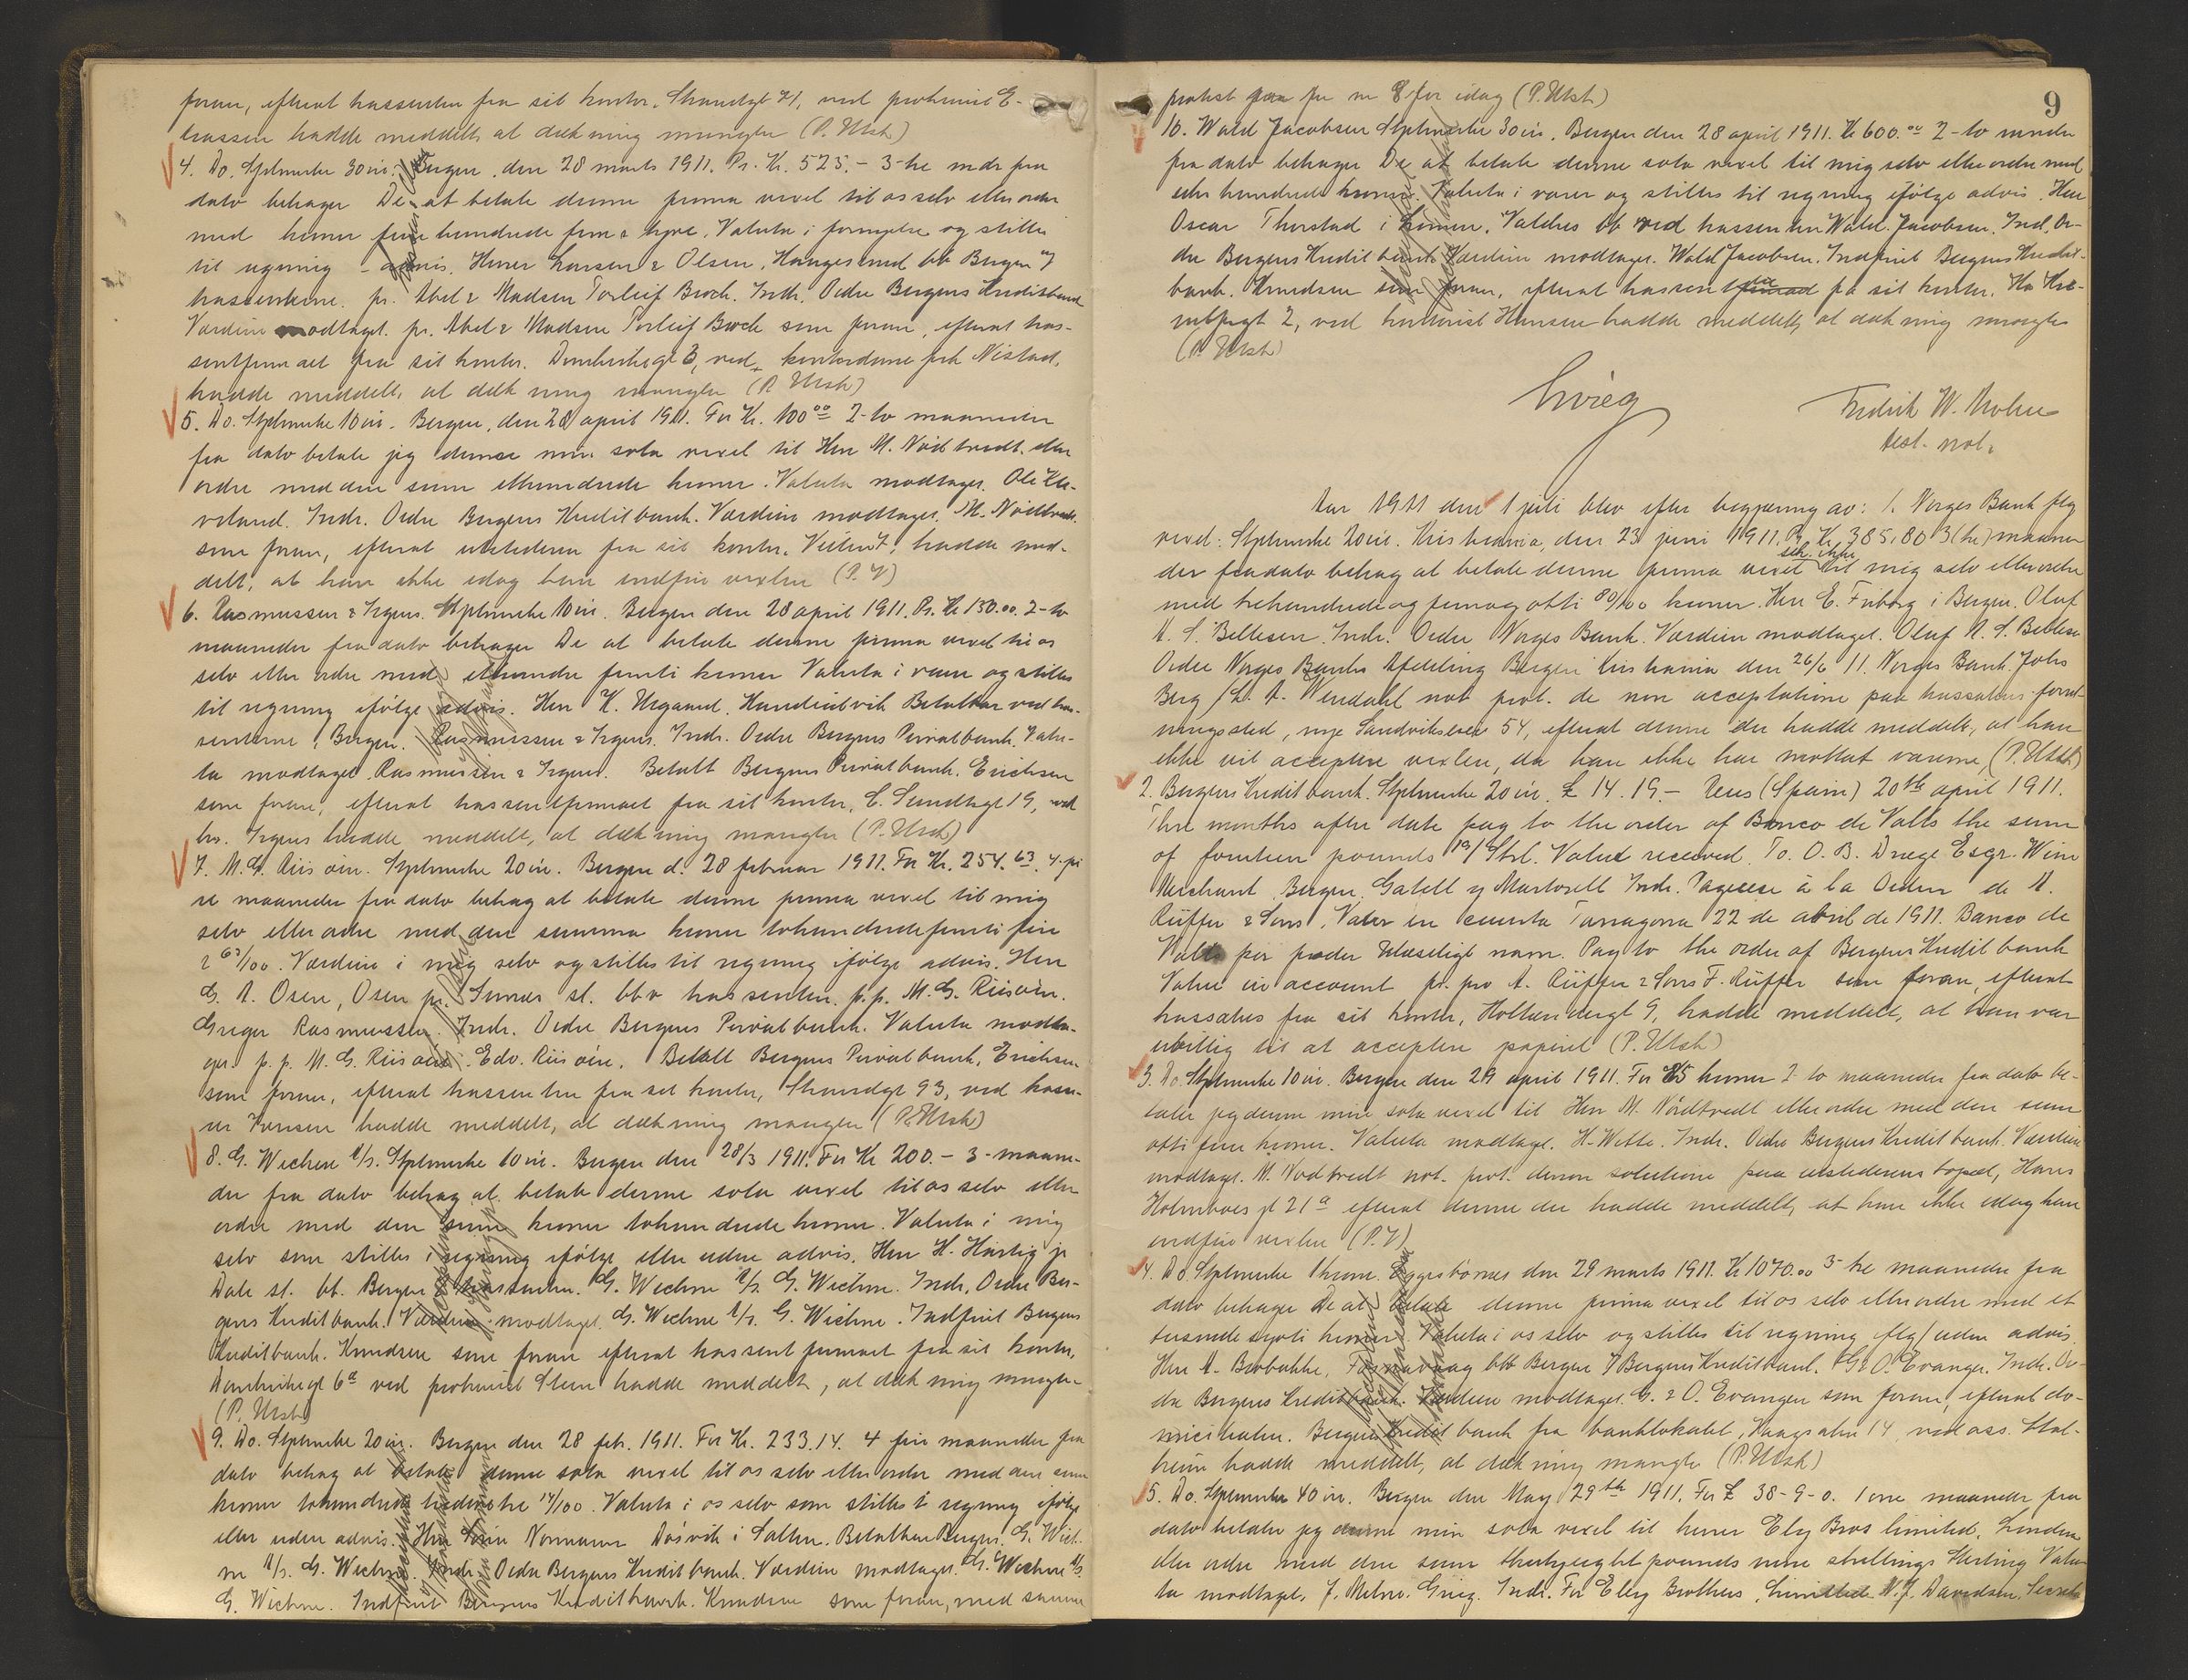 foran, efterat trassenten fra sit kontor, Strandgt 21, ved prokurist E-
trassen hadde meddelt at dækning mangler (P. Utsk)
4. Do. Stplmerke 30 øre. Bergen, den 28 marts 1911. Pr. Kr. 525.- 3-tre mdr fra
dato behager De at betale denne prima vexel til os selv eller ordre
med kroner fem hundrede fem & tyve. Valuta i fornøyelse og stilles
til regning - advis. Herrer Larsen & Olsen, Haugesund bb Bergen
trassenterne. pr. Abel & Madsen Torleif Broch. Indr. Ordre Bergens Kreditbank
Værdien modtaget. pr. Abel & Madsen Torleif Broch som foran, efterat tras-
sentfirmaet fra sit kontor, Domkirkegt 3, ved kontordame frk Nistad,
hadde meddelt, at dækning mangler (P. Utsk)
5. Do. Stplmerke 10 øre. Bergen, den 28 april 1911. For Kr. 100.00 2-to maaneder
fra dato betaler jeg denne min sola vexel til Herr M. Nødtvedt eller
ordre med den sum ethundrede kroner. Valuta modtaget. Ole Kle-
veland. Indr. Ordre Bergens Kreditbank. Værdien modtaget. M. Nødtvedt
som foran, efterat utstederen fra sit kontor, hadde med-
delt, at han ikke idag kan indfri vexlen (P. V)
6. Rasmussen & Irgens. Stplmerke 10 øre. Bergen den 28 april 1911. Pr. Kr 150.00. 2-to
maaneder fra dato behager De at betale denne prima vexel til os
selv eller ordre med ethundre femti kroner Valuta i varer og stilles
til regning ifølge advis. Herr K. Urgaard. Hundeidvik Betalbar ved tras-
senterne i Bergen. Rasmussen & Irgens. Indr. Ordre Bergens Privatbank. Valu-
ta modtaget. Rasmussen & Irgens. Betalt Bergens Privatbank. Erichsen
som foran, efterat trassentfirmaet fra sit kontor, C. Sundtsgt 19, ved
hr. Irgens hadde meddelt, at dækning mangler (P. Utsk)
7. M. G. Riisøen. Stplmerke 20 øre. Bergen d. 28 februar 1911. For Kr. 254.63. 4-fi
re maaneder fra dato behag at betale denne prima vexel til mig
selv eller ordre med den summa kroner tohundredefemtifire
& 63/100. Værdien i mig selv og stilles til regning ifølge advis. Herr
G. A. Osen, Osen pr. Sunnes st. bbr trassenten. p.p. M. G. Riisøen.
Greger Rasmussen. Indr. Ordre Bergens Privatbank. Valuta modta-
get. p.p. M. G. Riisøen. Edv. Riisøen. Betalt Bergens Privatbank, Erichsen
som foran, efterat trassenten fra sit kontor, Strandgt 93, ved kasse-
rer Iversen hadde meddelt, at dækning mangler (P. Utsk)
8. G. Wichne A/s. Stplmerke 10 øre. Bergen den 28/3 1911. For Kr 200.- 3-maane-
der fra dato behag at betale denne sola vexel til os selv eller
ordre med den sum kroner tohundrede kroner. Valuta i mig
selv som stilles i regning ifølge eller uden advis. Herr H. Hartig jr
Dale st. bt. Bergen trassenten. G. Wichne A/s. G. Wichne. Indr. Ordre Ber-
gens Kreditbank. Værdien modtaget. G. Wichne A/s. G. Wichne. Indfriet Bergens
Kreditbank. Knudsen som foran efterat trassentfirmaet fra sit kontor,
Domkirkegt 6a ved prokurist Steen hadde meddelt, at dækning mangler
(P. Utsk)
9. Do. Stplmerke 20 øre. Bergen den 28 feb. 1911. For Kr. 233.14. 4 fire maaneder fra
dato behag at betale denne sola vexel til os selv eller ordre med den sum
kroner tohundrede tredevetre 14/100. Valuta i os selv som stilles i regning ifølge
eller uden advis. Herr Normann Løsvik i Salten. Betalbar Bergen. G. Wich-
ne A/s. G. Wichne. Indr. Ordre Bergens Kreditbank. Værdien modtaget. G. Wichne A/s.
G. Wichne. Indfriet Bergens Kreditbank. Knudsen som foran, med samme
9
protest som for nr 8 for idag (P. Utsk)
10. Wald Jacobsen Stplmerke 30 øre. Bergen den 28 april 1911. Kr 600.00 2-to maaneder
fra dato behager De at betale denne sola vexel til mig selv eller ordre med
seks hundrede kroner. Valuta i varer og stilles til regning ifølge advis. Herr
Oscar Thorstad i Lomen, Valdres bb ved trassenten Wald. Jacobsen. Ind. Or-
dre Bergens Kreditbank Værdien modtaget. Wald Jacobsen. Indfriet Bergens Kredit-
bank. Knudsen som foran, efterat trassenten fra sit kontor,
2, ved kontorist Hansen hadde meddelt, at dækning mangler
(P. Utsk)
Grieg
Fredrik W. Krohn
test. not.
Aar 1911 den 1 juli blev efter begjæring av: 1. Norges Bank flg
vexel: Stplmerke 20 øre. Kristiania, den 23 juni 1911. Pr. Kr. 385,80 3 (tre) maane-
der fra dato behag at betale denne prima vexel sek. ikke til mig selv eller ordre
med trehundrede og femogotti 80/100 kroner. Herr E. Friborg i Bergen. Oluf
A. S. Bellesen. Indr. Ordre Norges Bank. Værdien modtaget. Oluf A. S. Bellesen
Ordre Norges Banks Afdeling Bergen Kristiania den 26/6 11. Norges Bank. Johs
Berg / L. A. Wendahl not. prot. de non acceptatione paa trassatens forret-
ningssted, nye Sandviksvei 54, efterat denne der hadde meddelt, at han
ikke vil acceptere vexlen, da han ikke har mottat varerne, (P. Utsk)
2. Bergens Kreditbank. Stplmerke 20 øre. £ 14.19.- Reus (Spain) 20th april 1911.
Three months after date pay to the order of Banco de Valls the sum
of fourteen pounds 19/ Strl. Value received. To. O. B. Drege Esqr. Wine
Merchant Bergen. Gatell y Martorell Indr. Paguese à la Orden de A.
Rüffer & Sons. Valor en cuenta Tarragona 22 de abril de 1911. Banco de
Valls por poder Ulæseligt navn. Pay to the order of Bergens Kreditbank
Value in account pr. pro A. Rüffer & Sons F. Rüffer som foran, efterat
trassatus fra sit kontor, Hollændergt 9, hadde meddelt, at han var
uvillig til at acceptere papiret (P. Utsk)
3. Do. Stplmerke 10 øre. Bergen den 29 april 1911. For 85 kroner 2-to maaneder fra dato be-
taler jeg denne min sola vexel til Herr M. Nødtvedt eller ordre med den sum
otti fem kroner. Valuta modtaget. H. Witte. Indr. Ordre Bergens Kreditbank. Værdien
modtaget. M. Nødtvedt not. prot. denon solutione paa utstederens bopæl, Hans
Holmboes gt 21a efterat denne der hadde meddelt, at han ikke idag kan
indfri vexlen (P. V)
4. Do. Stplmerke 1 krone. Eggesbønes den 29 marts 1911. Kr 1070.00 3-tre maaneder fra
dato behager De at betale denne prima vexel til os selv eller ordre med et
tusinde sytti kroner. Valuta i os selv og stilles til regning iflg/uden advis.
Herr A. Brobakke, Fosnavaag bb Bergen Bergens Kreditbank. G & O. Evanger. Indr. Or-
dre Bergens Kreditbank. Værdien modtaget. G. & O. Evanger som foran, efterat do-
miciliaten. Bergens Kreditbank fra banklokalet, Vaagsalm 14 ved ass. Stal-
heim hadde meddelt, at dækning mangler (P. Utsk)
5. Do. Stplmerke 40 øre. Bergen den May 29th 1911. For £ 38-9-0. 1 one maaneder fra
dato betaler jeg denne min sola vexel til herrer Ely Bros limited, London
eller ordre med den sum thirtyeight pounds nine shillings Sterling Valu-
ta modtaget. J. Milne. Grieg. Indr. For Eley Brothers, Limited. N. J. Davidsen, Secretary